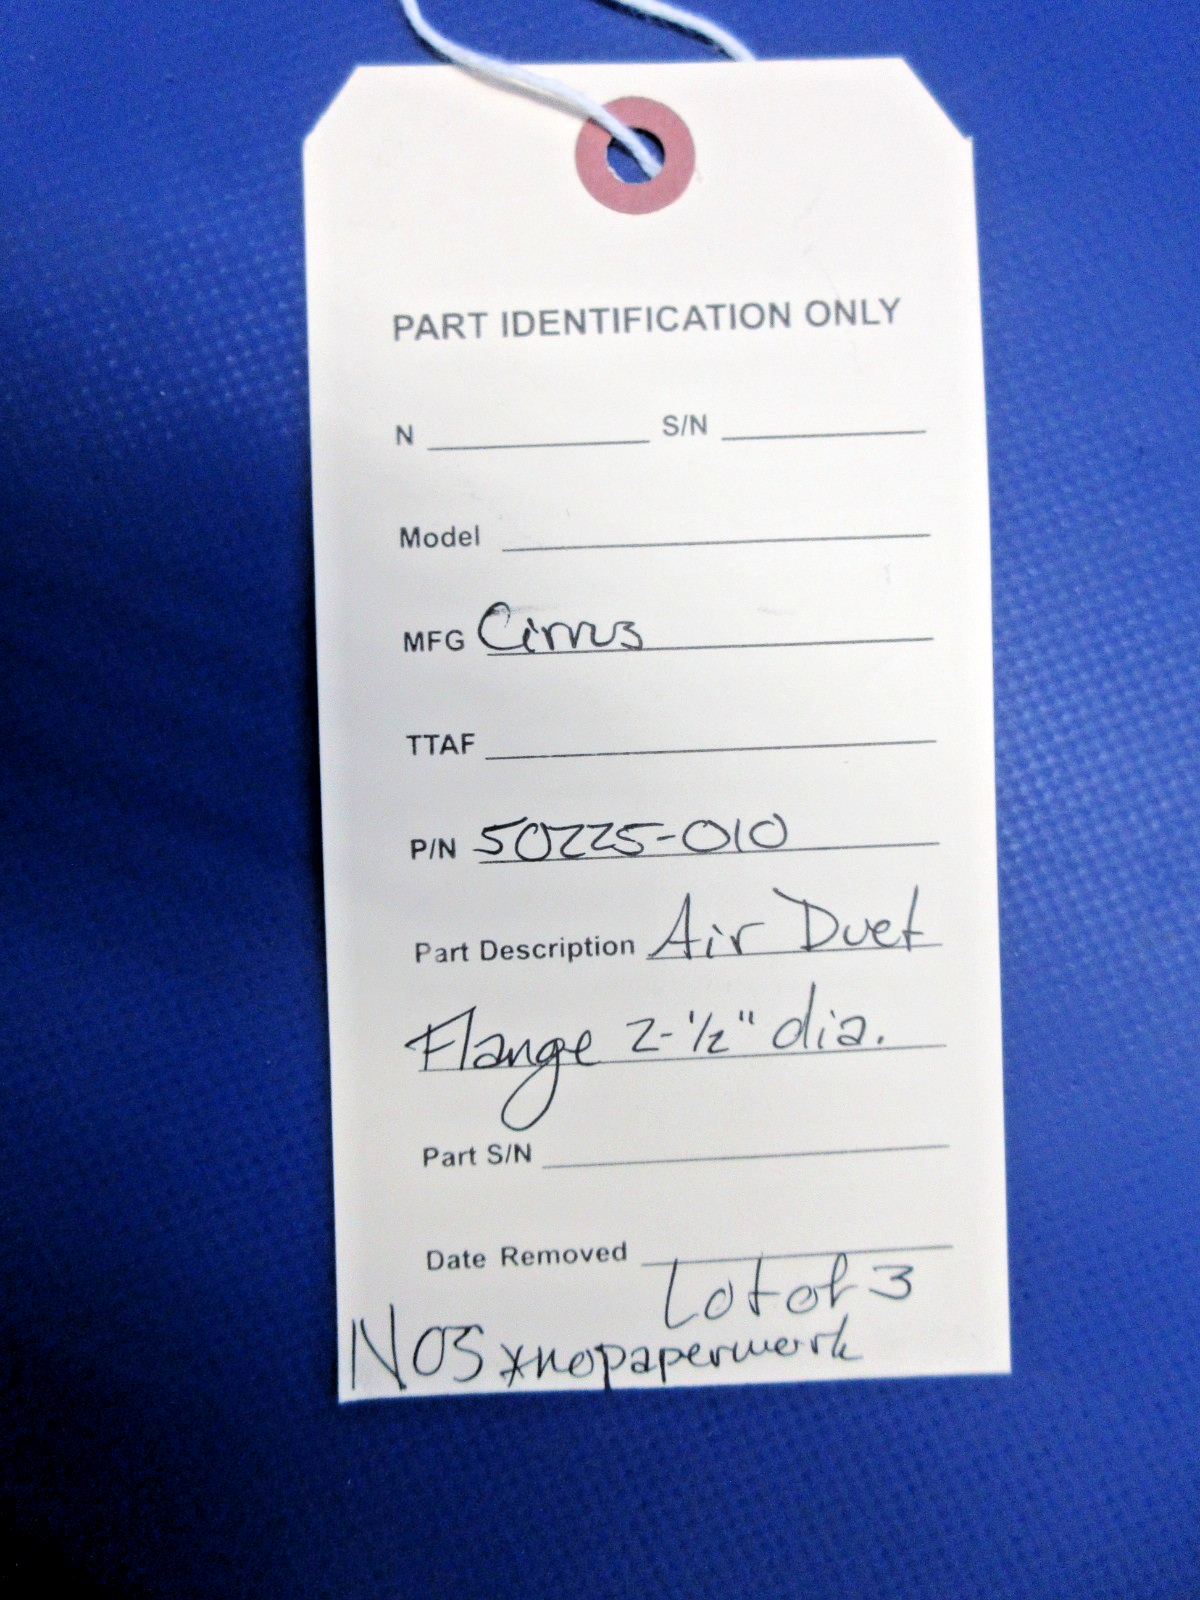 PART IDENTIFICATION ONLY
N S/N
Model
MFG Cirrus
TTAF
P/N 50225-010
Part Description Air Duct
Flange 2-1/2" dia.
Part S/N
Date Removed
Lot of 3
NOS *no paperwork